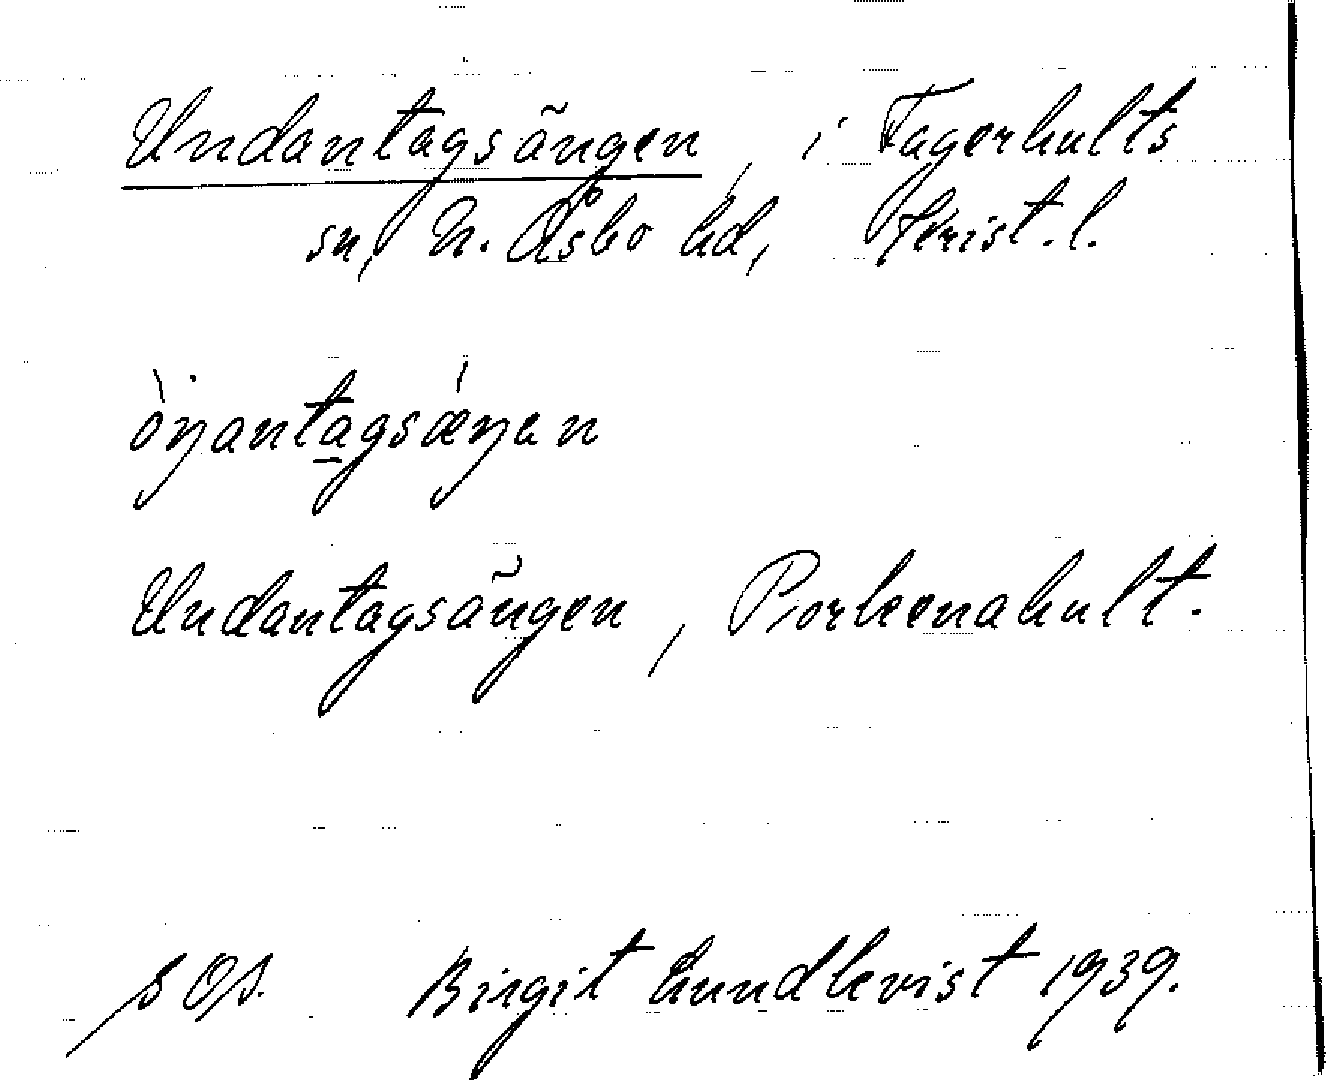 Undantagsängen, i Fagerhults
sn, N. Åsbo hd, Krist. l.
òŋantagsǽŋen
Undantagsängen, Porkenahult.
s Os. Birgit Lundkvist 1939.